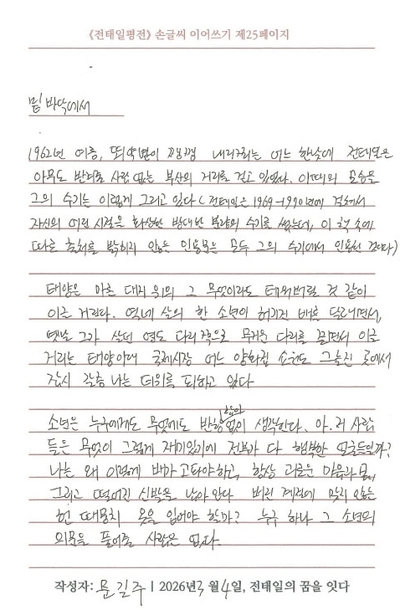 《전태일평전》 손글씨 이어쓰기 제25페이지
밑바닥에서
1962년 여름, 뙤약볕이 내려쬐는 어느 한낮에 전태일은
아무도 반겨줄 사람 없는 부산의 거리를 걷고 있었다. 이때의 모습을
그의 수기는 이렇게 그리고 있다 (전태일은 1969-1970년에 걸쳐서
자신의 어린 시절을 회상한 방대한 분량의 수기를 썼는데, 이 책 속에
따로 출처를 밝히지 않은 인용문은 모두 그의 수기에서 인용된 것이다)
태양은 아는 대지 위의 그 무엇이라도 태워버릴 것 같이
이글 거리다. 열네 살의 한 소년이 허기진 배를 달래면서,
옛날 그가 살던 영도 다리 쪽으로 무거운 다리를 끌면서 이글
거리는 태양아래 국제시장 어느 양화점 쇼윈도 그늘진 곳에서
잠시 갈증나는 더위를 피하고 있다
소년은 누구에게도 무엇에도 반항없이 생각한다. 아, 저 사람
들은 무엇이 그렇게 재미있기에 전부가 다 행복한 얼굴들일까?
나는 왜 이렇게 배가 고파야하고, 항상 괴로운 마음과 몸,
그리고 떨어진 신발을 신어야 하나 계절에 맞지 않는
헌 때뭉치 옷을 입어야 할까? 누구 하나 그 소년의
의문을 풀어줄 사람은 없다.
작성자: 문길주 | 2026년 3월 4일, 전태일의 꿈을 잇다